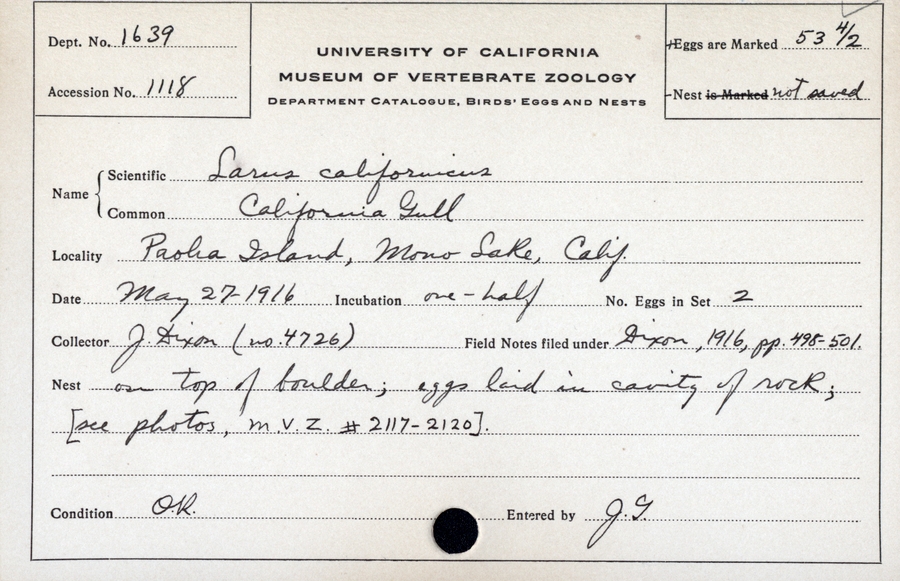 Dept. No. 1639
Accession No. 1118
UNIVERSITY OF CALIFORNIA
MUSEUM OF VERTEBRATE ZOOLOGY
DEPARTMENT CATALOGUE, BIRDS' EGGS AND NESTS
Eggs are Marked 53 4/2
Nest is Marked not saved
Name
Scientific Larus californicus
Common California Gull
Locality Paoha Island, Mono Lake, Calif.
Date May 27-1916 Incubation one-half No. Eggs in Set 2
Collector J. Dixon (no. 4726) Field Notes filed under Dixon, 1916, pp. 498-501.
Nest on top of boulder; eggs laid in cavity of rock;
[see photos, M.V.Z. # 2117-2120].
Condition O.K. Entered by J.G.